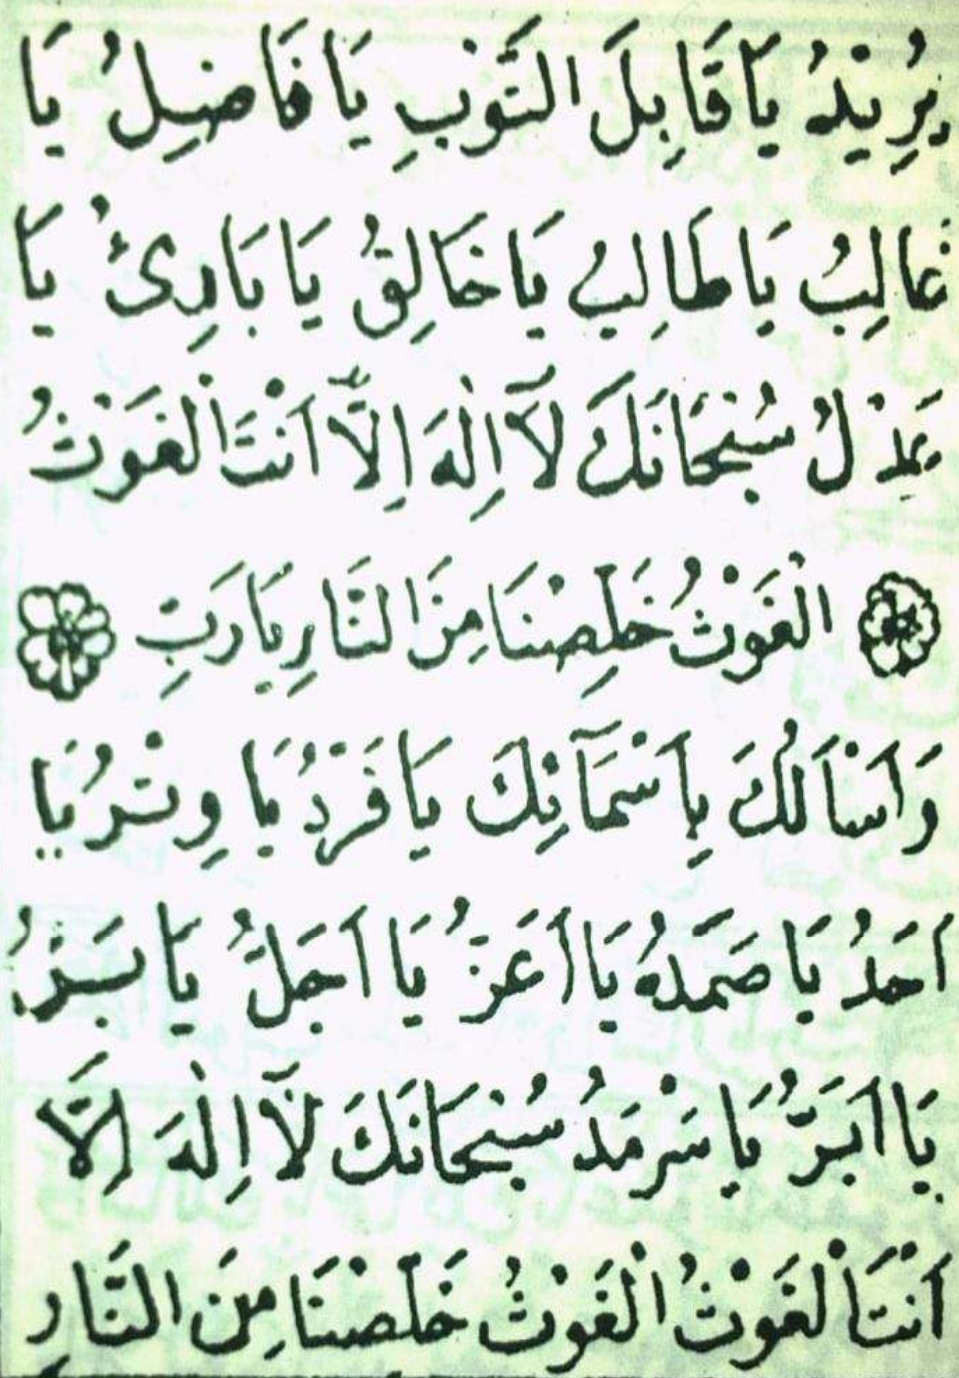 يُرِيدُ يَا قَابِلَ التَّوْبِ يَا فَاضِلُ يَا
غَالِبُ يَا طَالِبُ يَا خَالِقُ يَا بَارِئُ يَا
سُبْحَانَكَ لَآ اِلٰهَ اِلَّآ اَنْتَ الْغَوْثُ
الْغَوْثُ خَلِّصْنَا مِنَ النَّارِ يَا رَبِّ
وَاَسْاَلُكَ بِاَسْمَآئِكَ يَا فَرْدُ يَا وِتْرُ يَا
اَحَدُ يَا صَمَدُ يَا اَعَزُّ يَا اَجَلُّ يَا
يَا اَبَرُّ يَا سَرْمَدُ سُبْحَانَكَ لَآ اِلٰهَ اِلَّا
اَنْتَ الْغَوْثُ الْغَوْثُ خَلِّصْنَا مِنَ النَّارِ